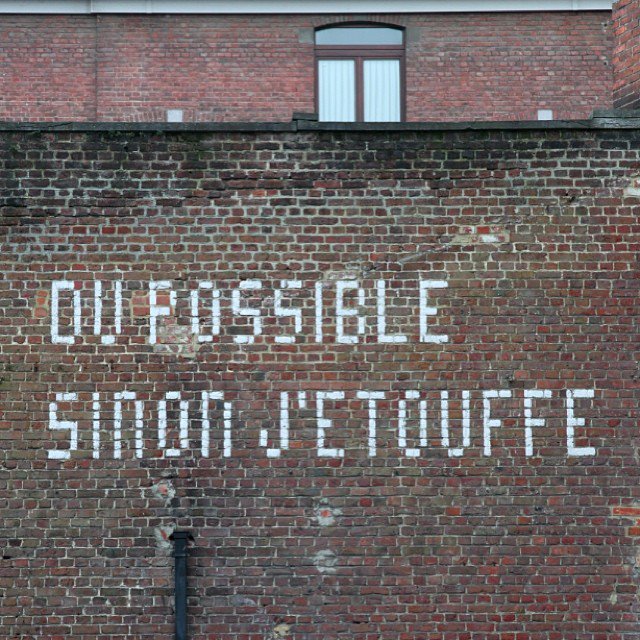 DU POSSIBLE
SINON J'ETOUFFE